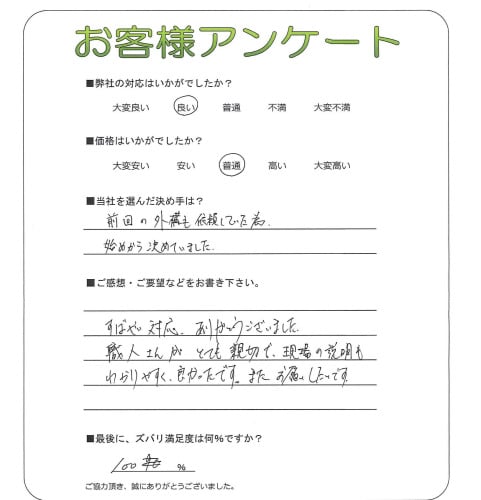 お客様アンケート
■弊社の対応はいかがでしたか？
大変良い 良い 普通 不満 大変不満
■価格はいかがでしたか？
大変安い 安い 普通 高い 大変高い
■当社を選んだ決め手は？
前回の外構も依頼していた為、
始めから決めていました。
■ご感想・ご要望などをお書き下さい。
すばやい対応、ありがとうございました。
職人さんがとても親切で、現場の説明も
わかりやすく、良かったです。またお願いしたいです。
■最後に、ズバリ満足度は何％ですか？
100 %
ご協力頂き、誠にありがとうございました。